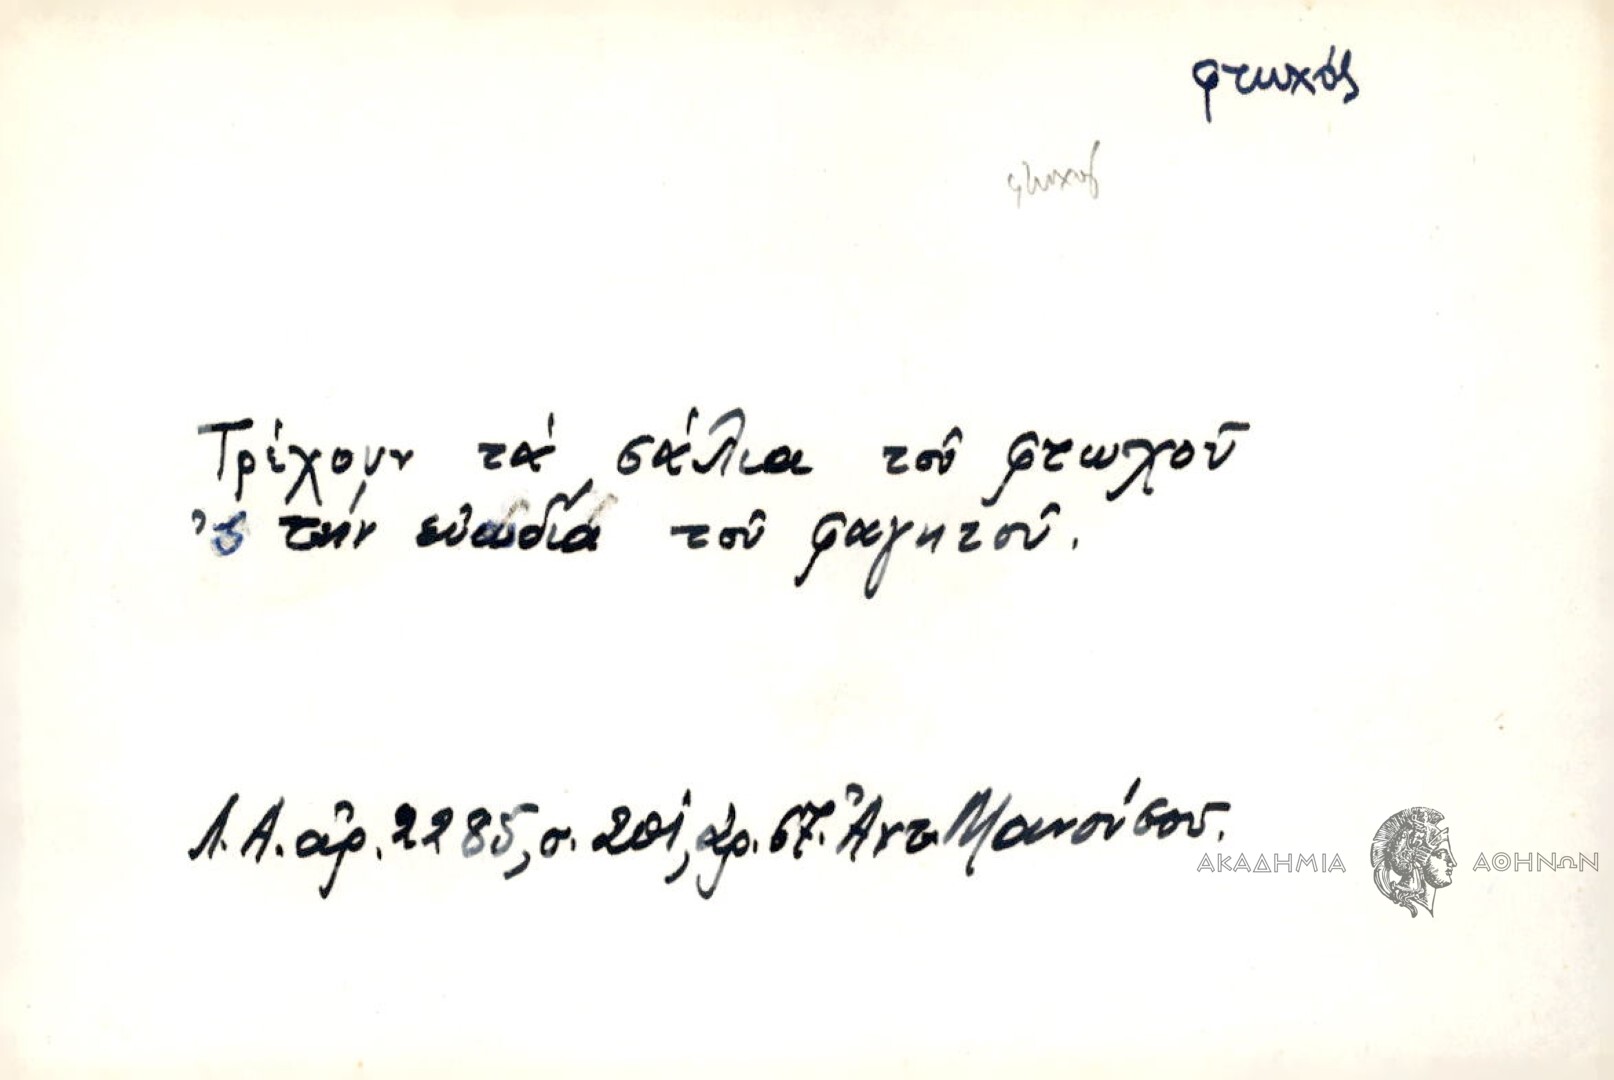 φτωχός
φτωχός
Τρέχουν τά σάλια τοῦ φτωχοῦ
'ς τήν εὐωδιά τοῦ φαγητοῦ.
Λ.Α. ἀρ. 2285, σ. 201, ἀρ. 67. Ἀντ. Μανούσου.
ΑΚΑΔΗΜΙΑ ΑΘΗΝΩΝ